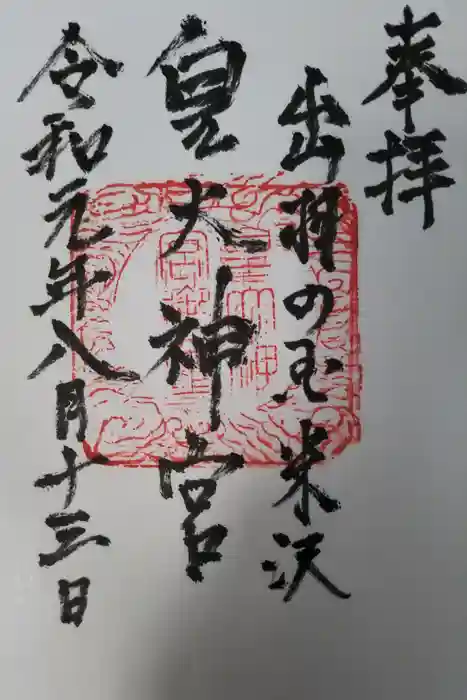 奉拝
出羽の国米沢
皇大神宮
令和元年八月十三日